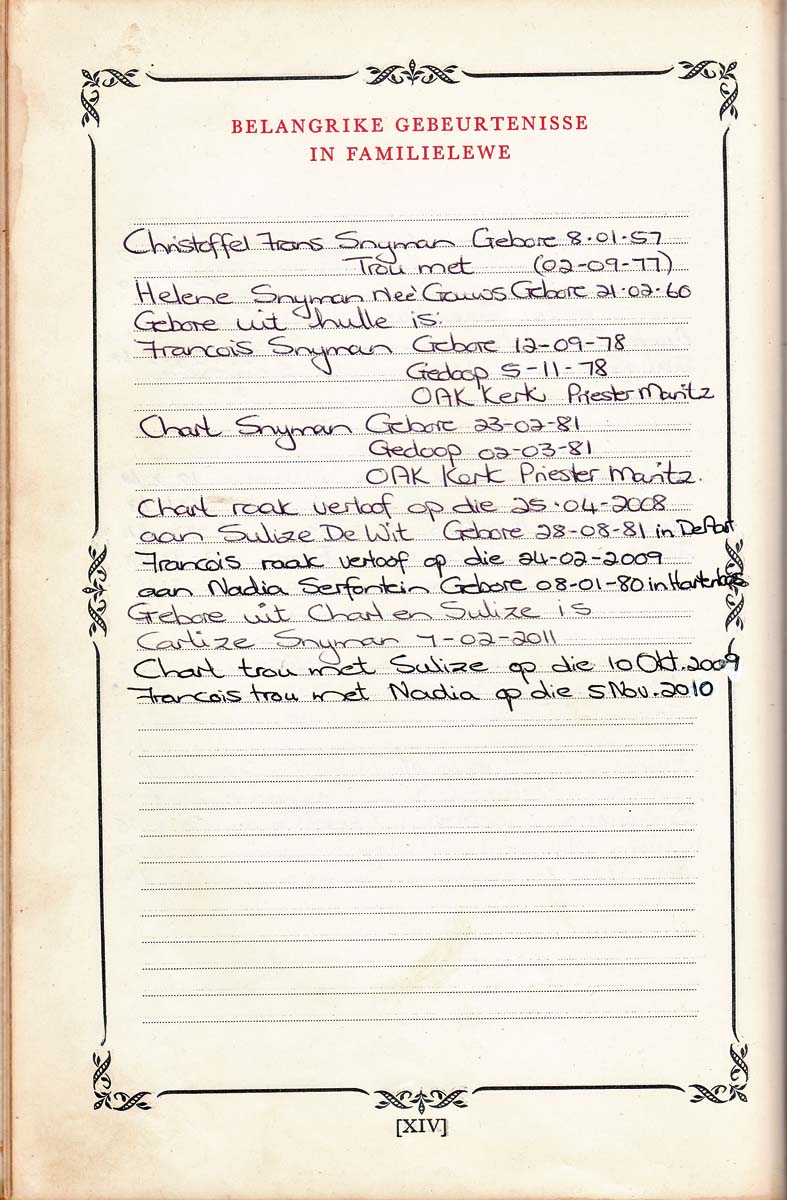 BELANGRIKE GEBEURTENISSE
IN FAMILIELEWE
Christoffel Frans Snyman Gebore 8.01.57
Trou met (02-09-77)
Helene Snyman neè Gouws Gebore 21.02.60
Gebore uit hulle is:
Francois Snyman Gebore 12-09-78
Gedoop 5-11-78
OAK Kerk Priester Maritz
Charl Snyman Gebore 23-02-81
Gedoop 02-03-81
OAK Kerk Priester Maritz.
Charl raak verloof op die 25.04-2008
aan Sulize De Wit Gebore 28-08-81 in De Aar
Francois raak verloof op die 24-02-2009
aan Nadia Serfontein Gebore 08-01-80 in Hartenbos
Gebore uit Charl en Sulize is
Carlize Snyman 7-02-2011
Charl trou met Sulize op die 10 Okt.2009
Francois trou met Nadia op die 5 Nov.2010
[XIV]